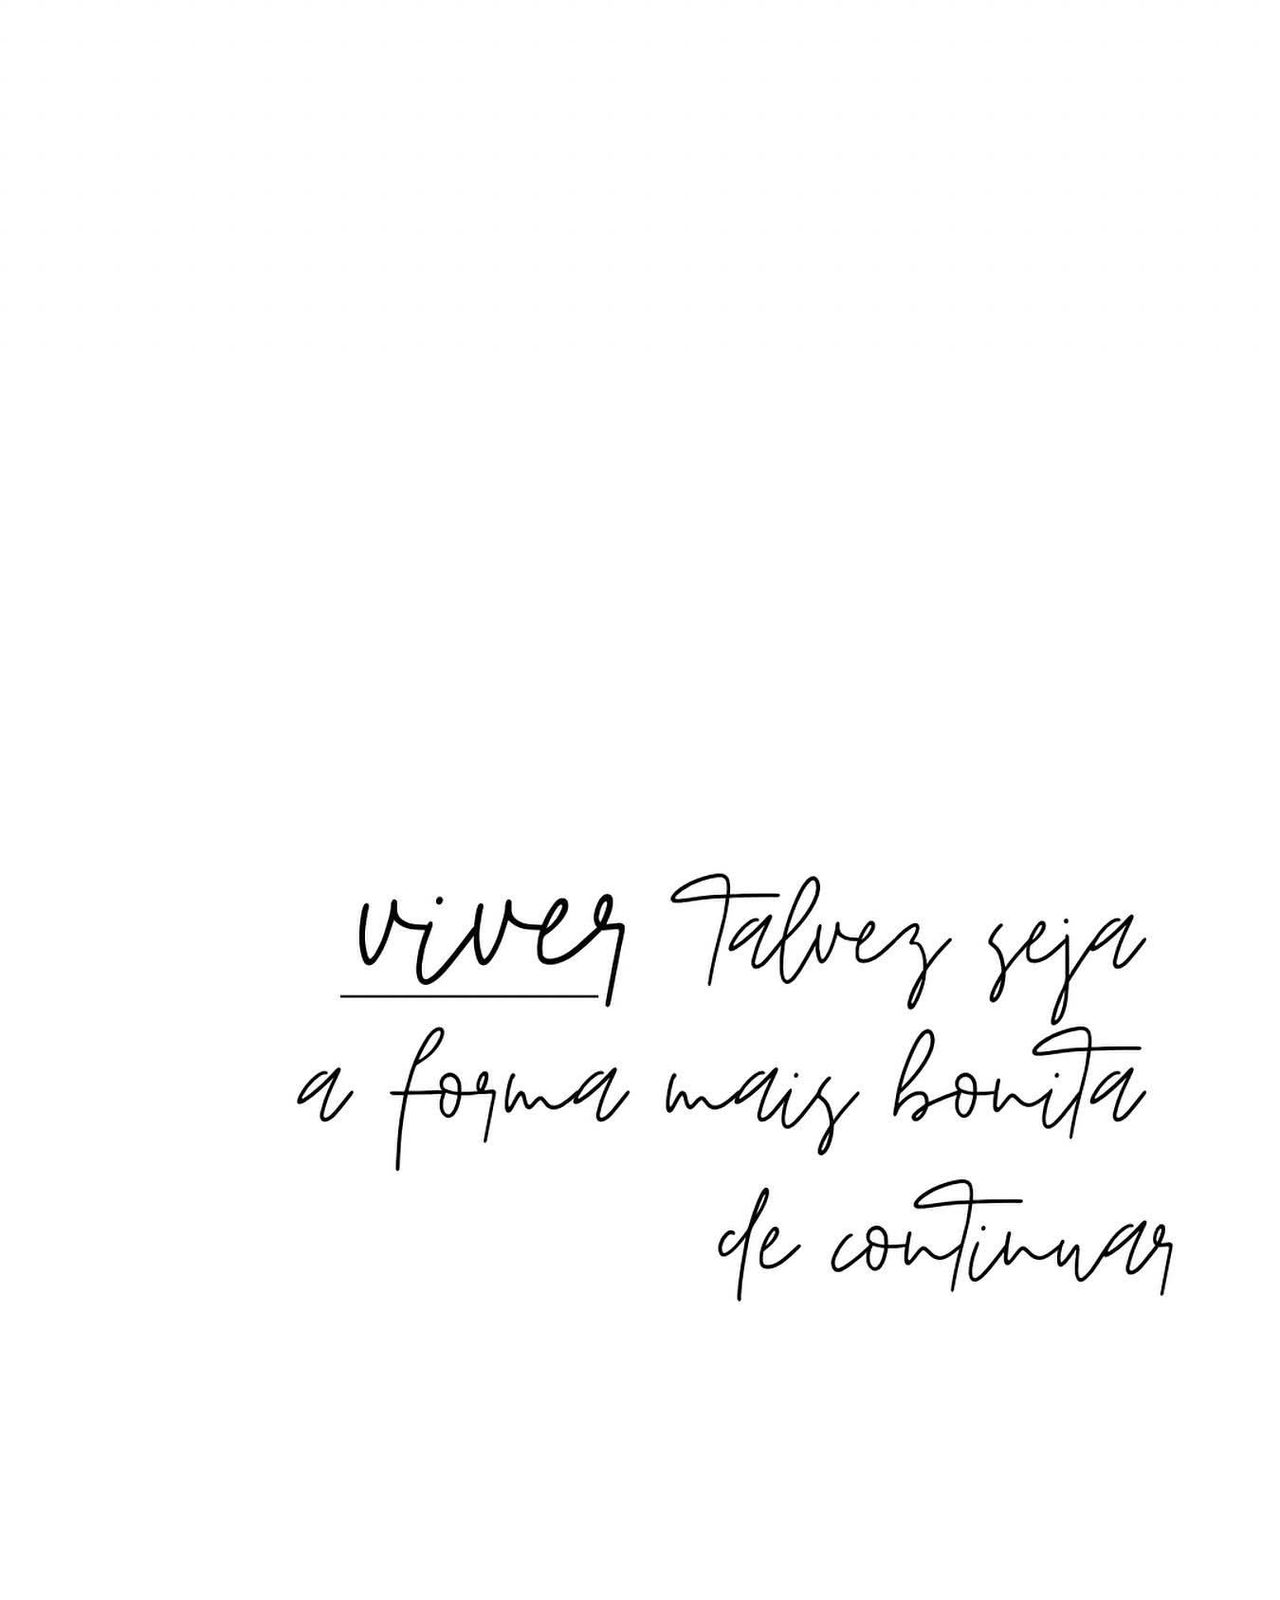 viver talvez seja
a forma mais bonita
de continuar